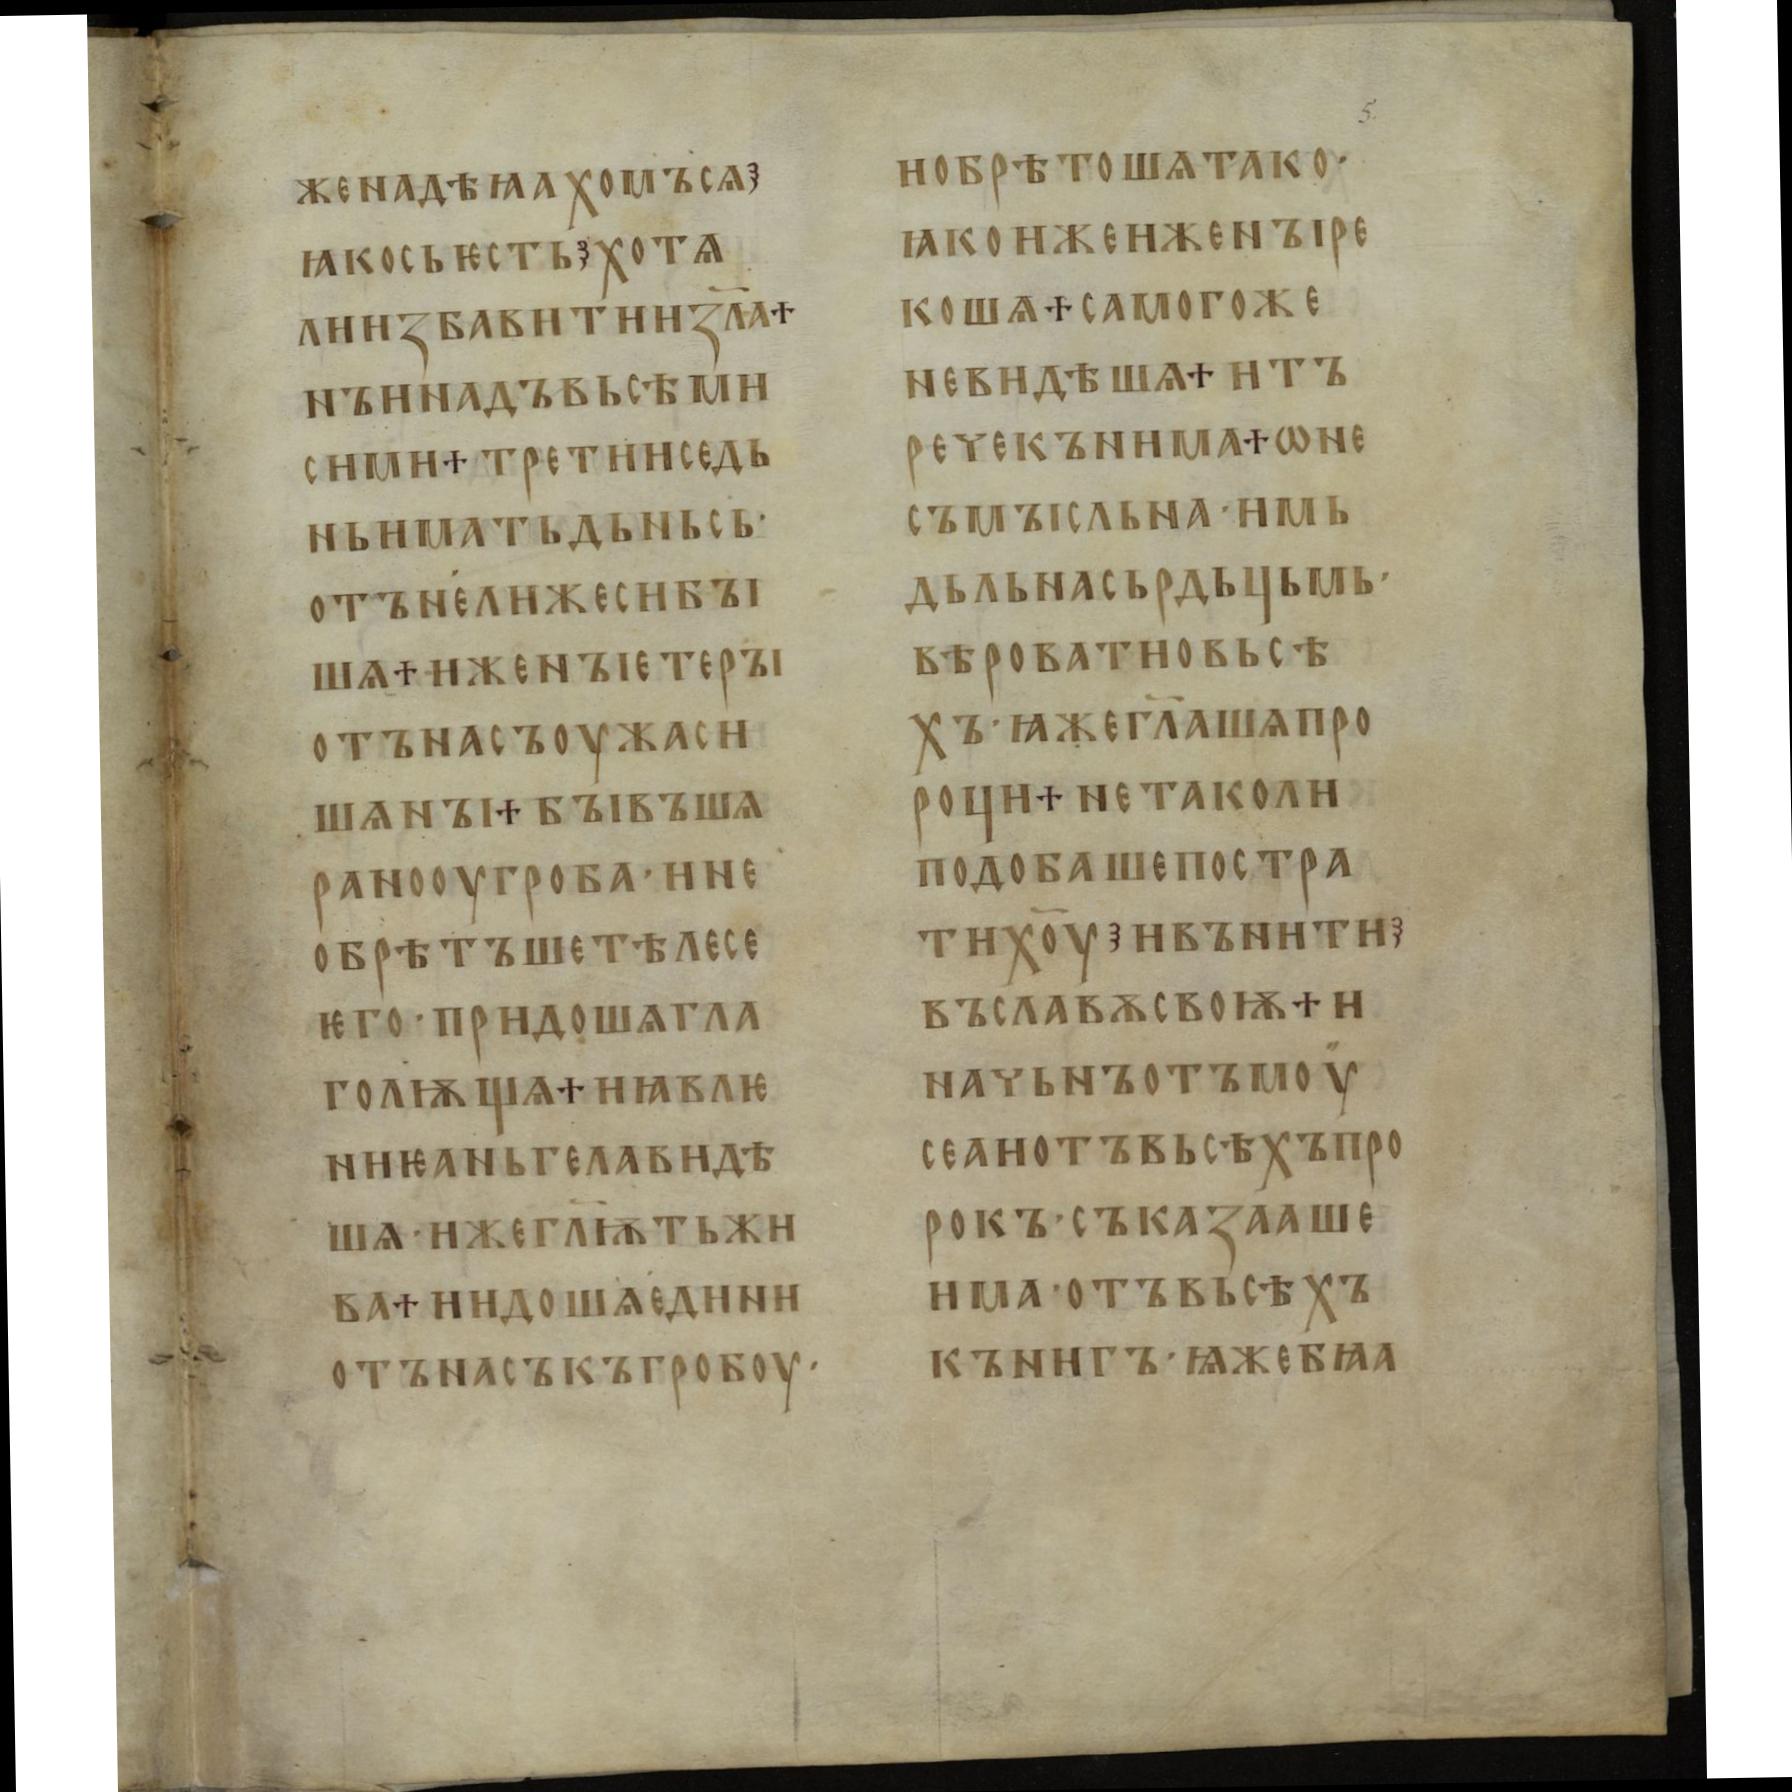 5.
женадѣꙗахомъсѧꙁ
ꙗкосьѥстьꙁхотѧ
лиизбавитииꙁл҃а+
нъинадъвьсѣми
сими+третииседь
ньиматьдьньсь·
отънелижесибꙑ
шѧ+иженꙑетерꙑ
отънасъоужаси
шѧнꙑ+бꙑвъшѧ
ранооугроба·ине
обрѣтъшетѣлесе
ѥго·придошѧгла
голѭщѧ+иꙗвлѥ
ниѥаньгелавидѣ
шѧ·ижегл҃ѭтьжи
ва+иидошѧедини
отънасъкъгробоу·
иобрѣтошѧтако·
ꙗкоиженженꙑре
кошѧ+самогоже
невидѣшѧ+итъ
речекънима+ѡне
съмꙑсльна·имь
дьльнасьрдьцьмь·
вѣроватиовьсѣ
хъ·ꙗжегл҃ашѧпро
роци+нетаколи
подобашепостра
тих҃оуꙁивънитиꙁ
въславѫсвоѭ+и
начьнъотъмоу
сеаиотъвьсѣхъпро
рокъ·съказааше
има·отъвьсѣхъ
кънигъ·ꙗжебꙗа